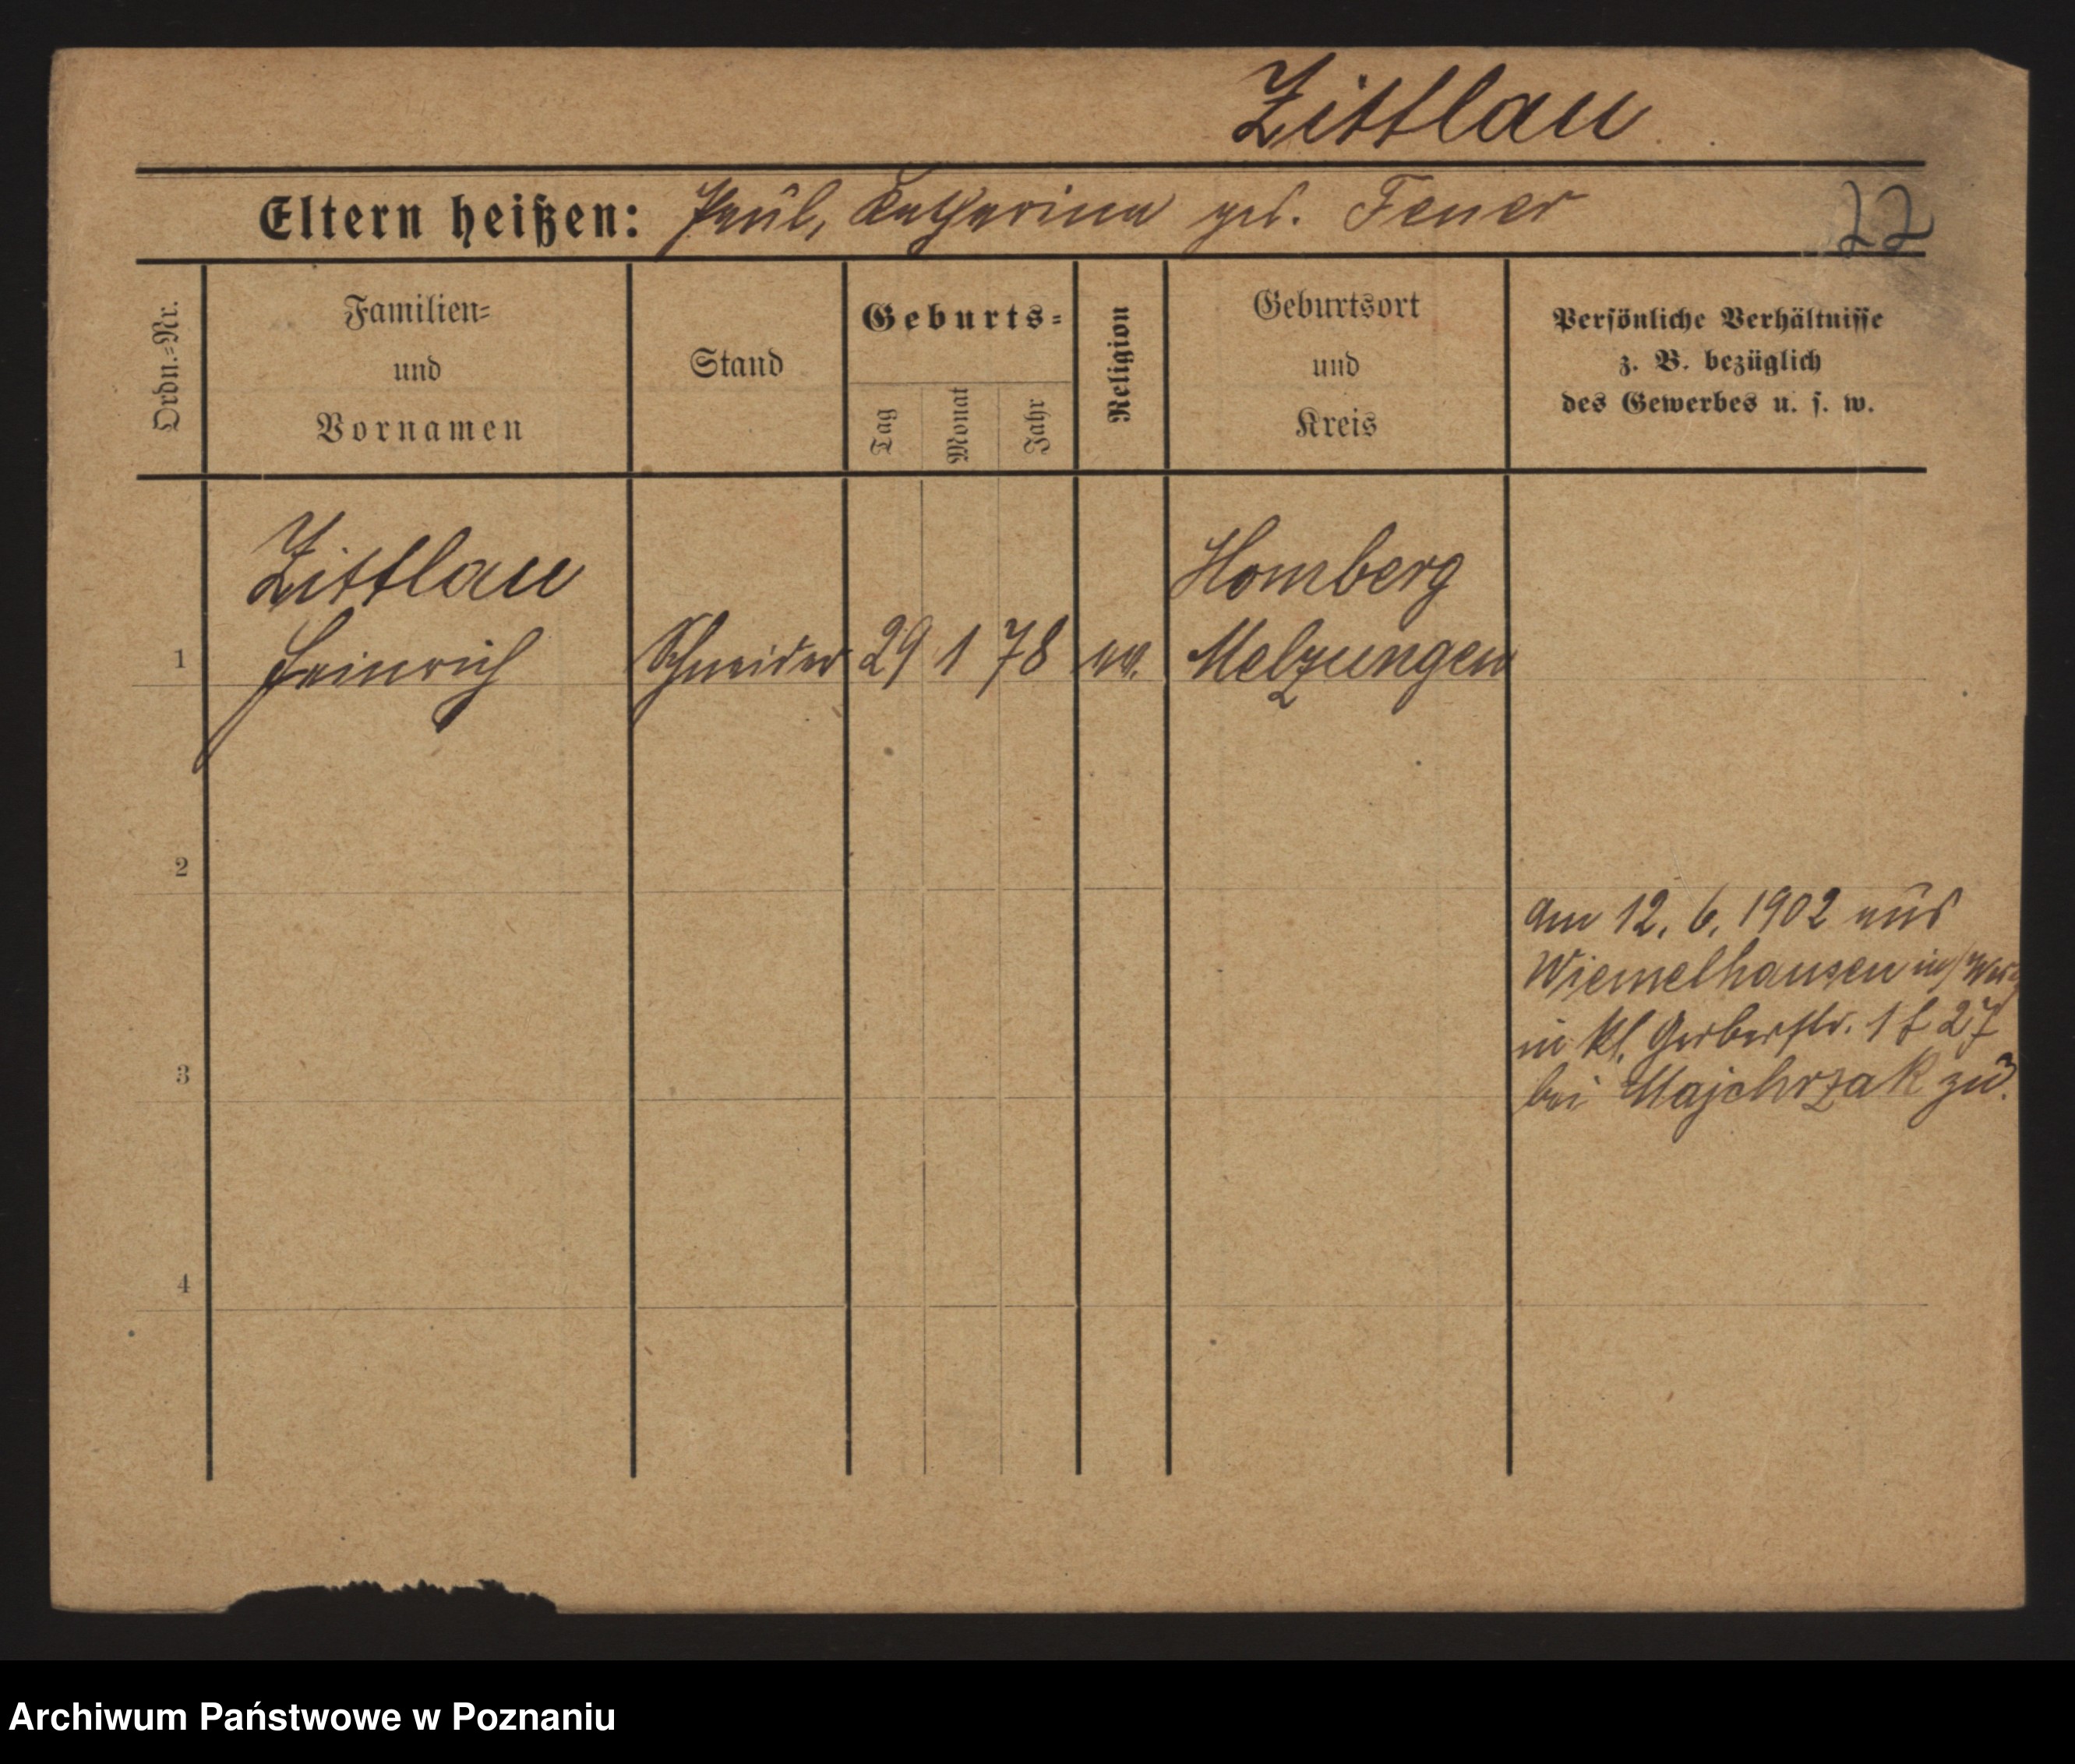 Zittlau
Eltern heißen: Paul, Katharina geb. Feuer
22
Ordn.=Nr.
Familien=
und
Vornamen
Stand
Geburts=
Tag
Monat
Jahr
Religion
Geburtsort
und
Kreis
Persönliche Verhältnisse
z. B. bezüglich
des Gewerbes u. s. w.
Zittlau
Homberg
1 Heinrich Schneider 29 1 78 ev. Melzungen
2
am 12. 6. 1902 aus
Wiemelhausen
3
in Kl. Gerberstr. 1 f 27
bei Majchrzak zu.
4
Archiwum Państwowe w Poznaniu